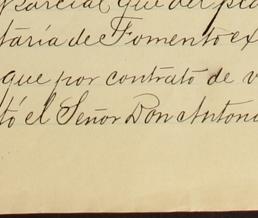 parcial que del
taría de Fomento ex
que por contrato de v
tó el Señor Don Antoni